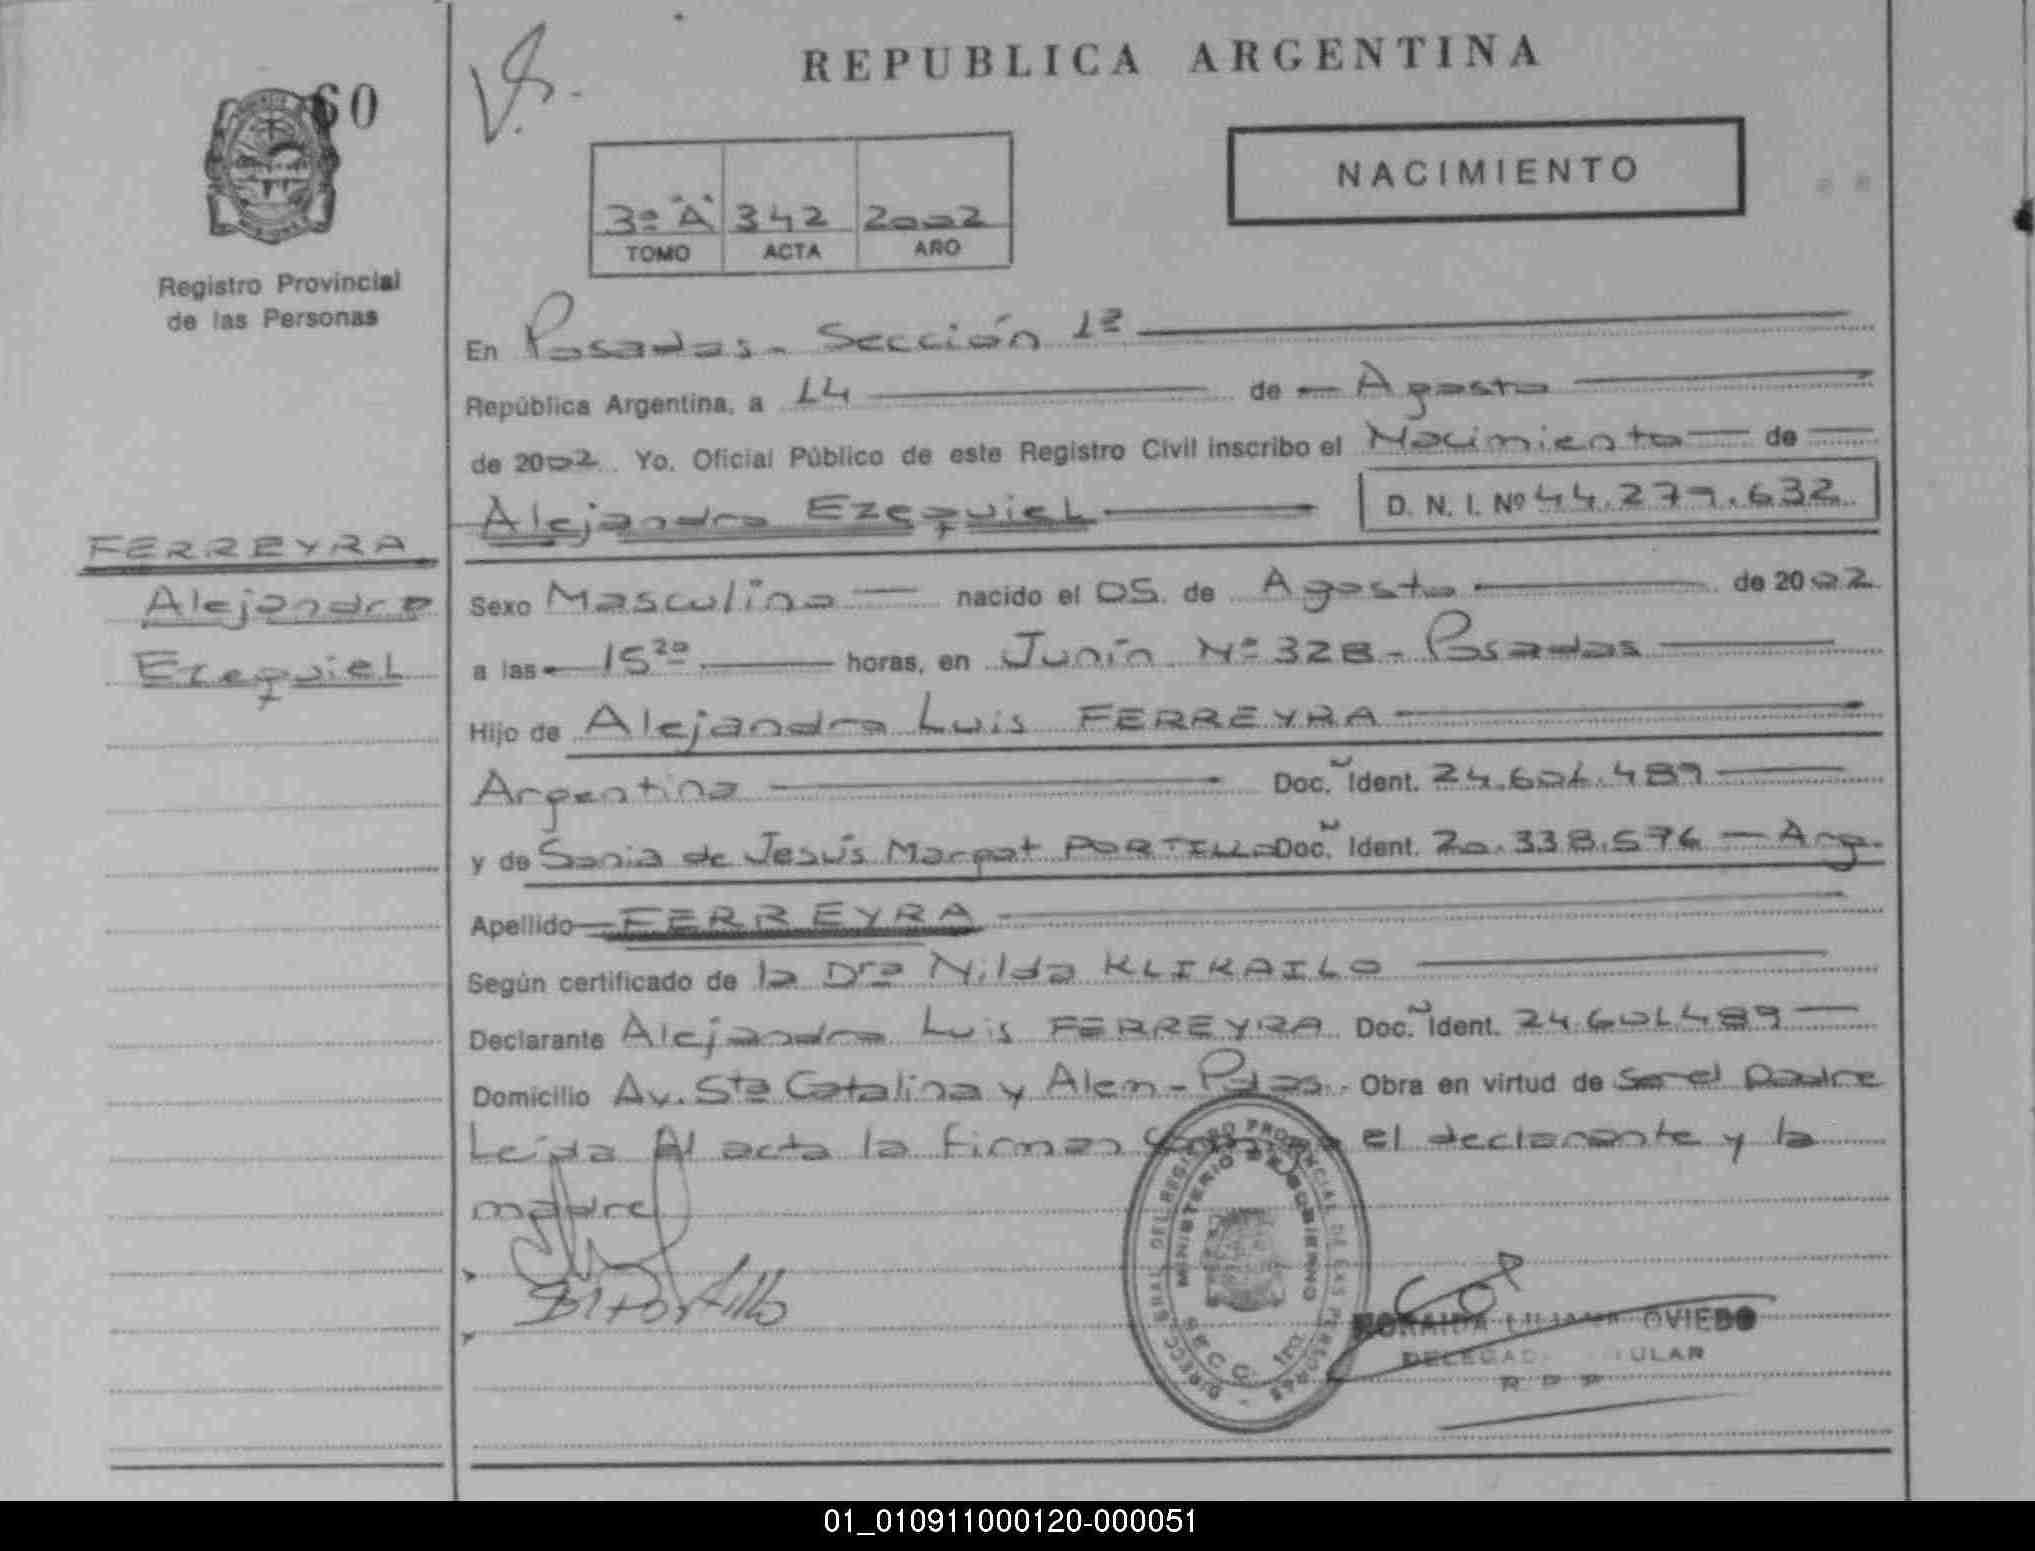 60
REPUBLICA ARGENTINA
NACIMIENTO
3º "A" 342 2002
TOMO ACTA AÑO
Registro Provincial
de las Personas
En Posadas - Sección 1ª
República Argentina, a 14 de Agosto
de 2002 . Yo, Oficial Público de este Registro Civil inscribo el Nacimiento de
Alejandro Ezequiel D. N. I. Nº 44.279.632
FERREYRA
Alejandro
Ezequiel
Sexo Masculino nacido el 05 de Agosto de 2002
a las 15 20 horas, en Junín Nº 328 - Posadas
Hijo de Alejandro Luis FERREYRA
Argentina Doc. Ident. 24.601.489
y de Sonia de Jesús Margot PORTILLO Doc. Ident. 20.338.576 - Arg.
Apellido FERREYRA
Según certificado de la Dra Nilda KLIKAILO
Declarante Alejandro Luis FERREYRA Doc. Ident. 24.601.489
Domicilio Av. Sta Catalina y Alem - Pdas. Obra en virtud de Ser el padre
Leída el acta la firman conmigo el declarante y la
madre
Portillo
DIRECC. GRAL. DEL REGISTRO PROVINCIAL DE LAS PERSONAS
MINISTERIO DE GOBIERNO
SECC. 1ra.
LILIANA OVIEDO
DELEGADA TITULAR
R P P
01_010911000120-000051